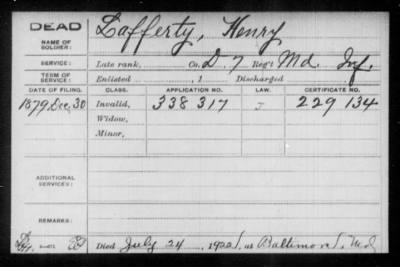 DEAD
NAME OF SOLDIER: Lafferty, Henry
SERVICE: Late rank, Co. D 7 Reg't Md. Inf.
TERM OF SERVICE: Enlisted , 1 Discharged
DATE OF FILING. CLASS. APPLICATION NO. LAW. CERTIFICATE NO.
1879 Dec, 30 Invalid, 338 317 J 229 134
Widow,
Minor,
ADDITIONAL SERVICES:
REMARKS:
Died July 24, 192 , at Baltimore, Md